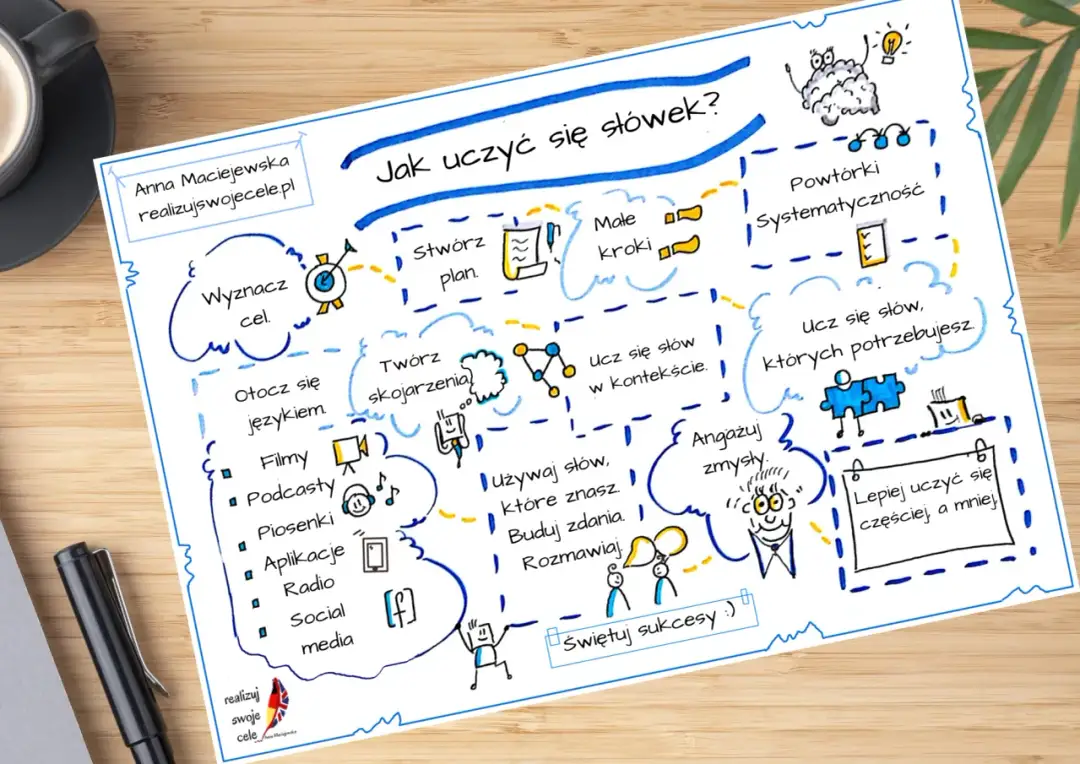 Jak uczyć się słówek?
Anna Maciejewska
realizujswojecele.pl
Wyznacz
cel.
Stwórz
plan.
Małe
kroki
Powtórki
Systematyczność
Otocz się
językiem.
Filmy
Podcasty
Piosenki
Aplikacje
Radio
Social
media
Twórz
skojarzenia
Ucz się słów
w kontekście.
Ucz się słów,
których potrzebujesz.
Używaj słów,
które znasz.
Buduj zdania.
Rozmawiaj.
Angażuj
zmysły.
Lepiej uczyć się
częściej, a mniej.
Świętuj sukcesy :)
realizuj
swoje
cele
Anna Maciejewska